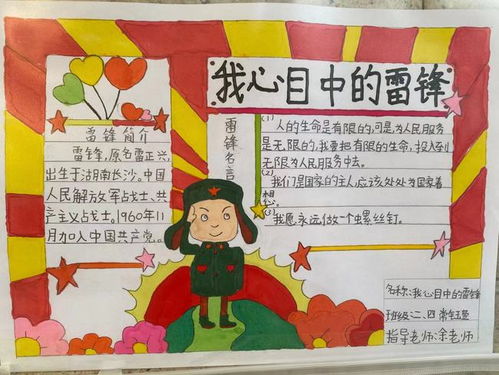 我心目中的雷锋
雷锋简介
雷锋,原名雷正兴,
出生于湖南长沙,中国
人民解放军战士、共
产主义战士。1960年11
月加入中国共产党。
雷锋名言
(1)
人的生命是有限的,可是,为人民服务
是无限的,我要把有限的生命,投入到
无限为人民服务中去。
(2)
我们是国家的主人,应该处处为国家着
想。
(3)
我愿永远做一个螺丝钉。
名称:我心目中的雷锋
班级:二、四
指导老师:余老师